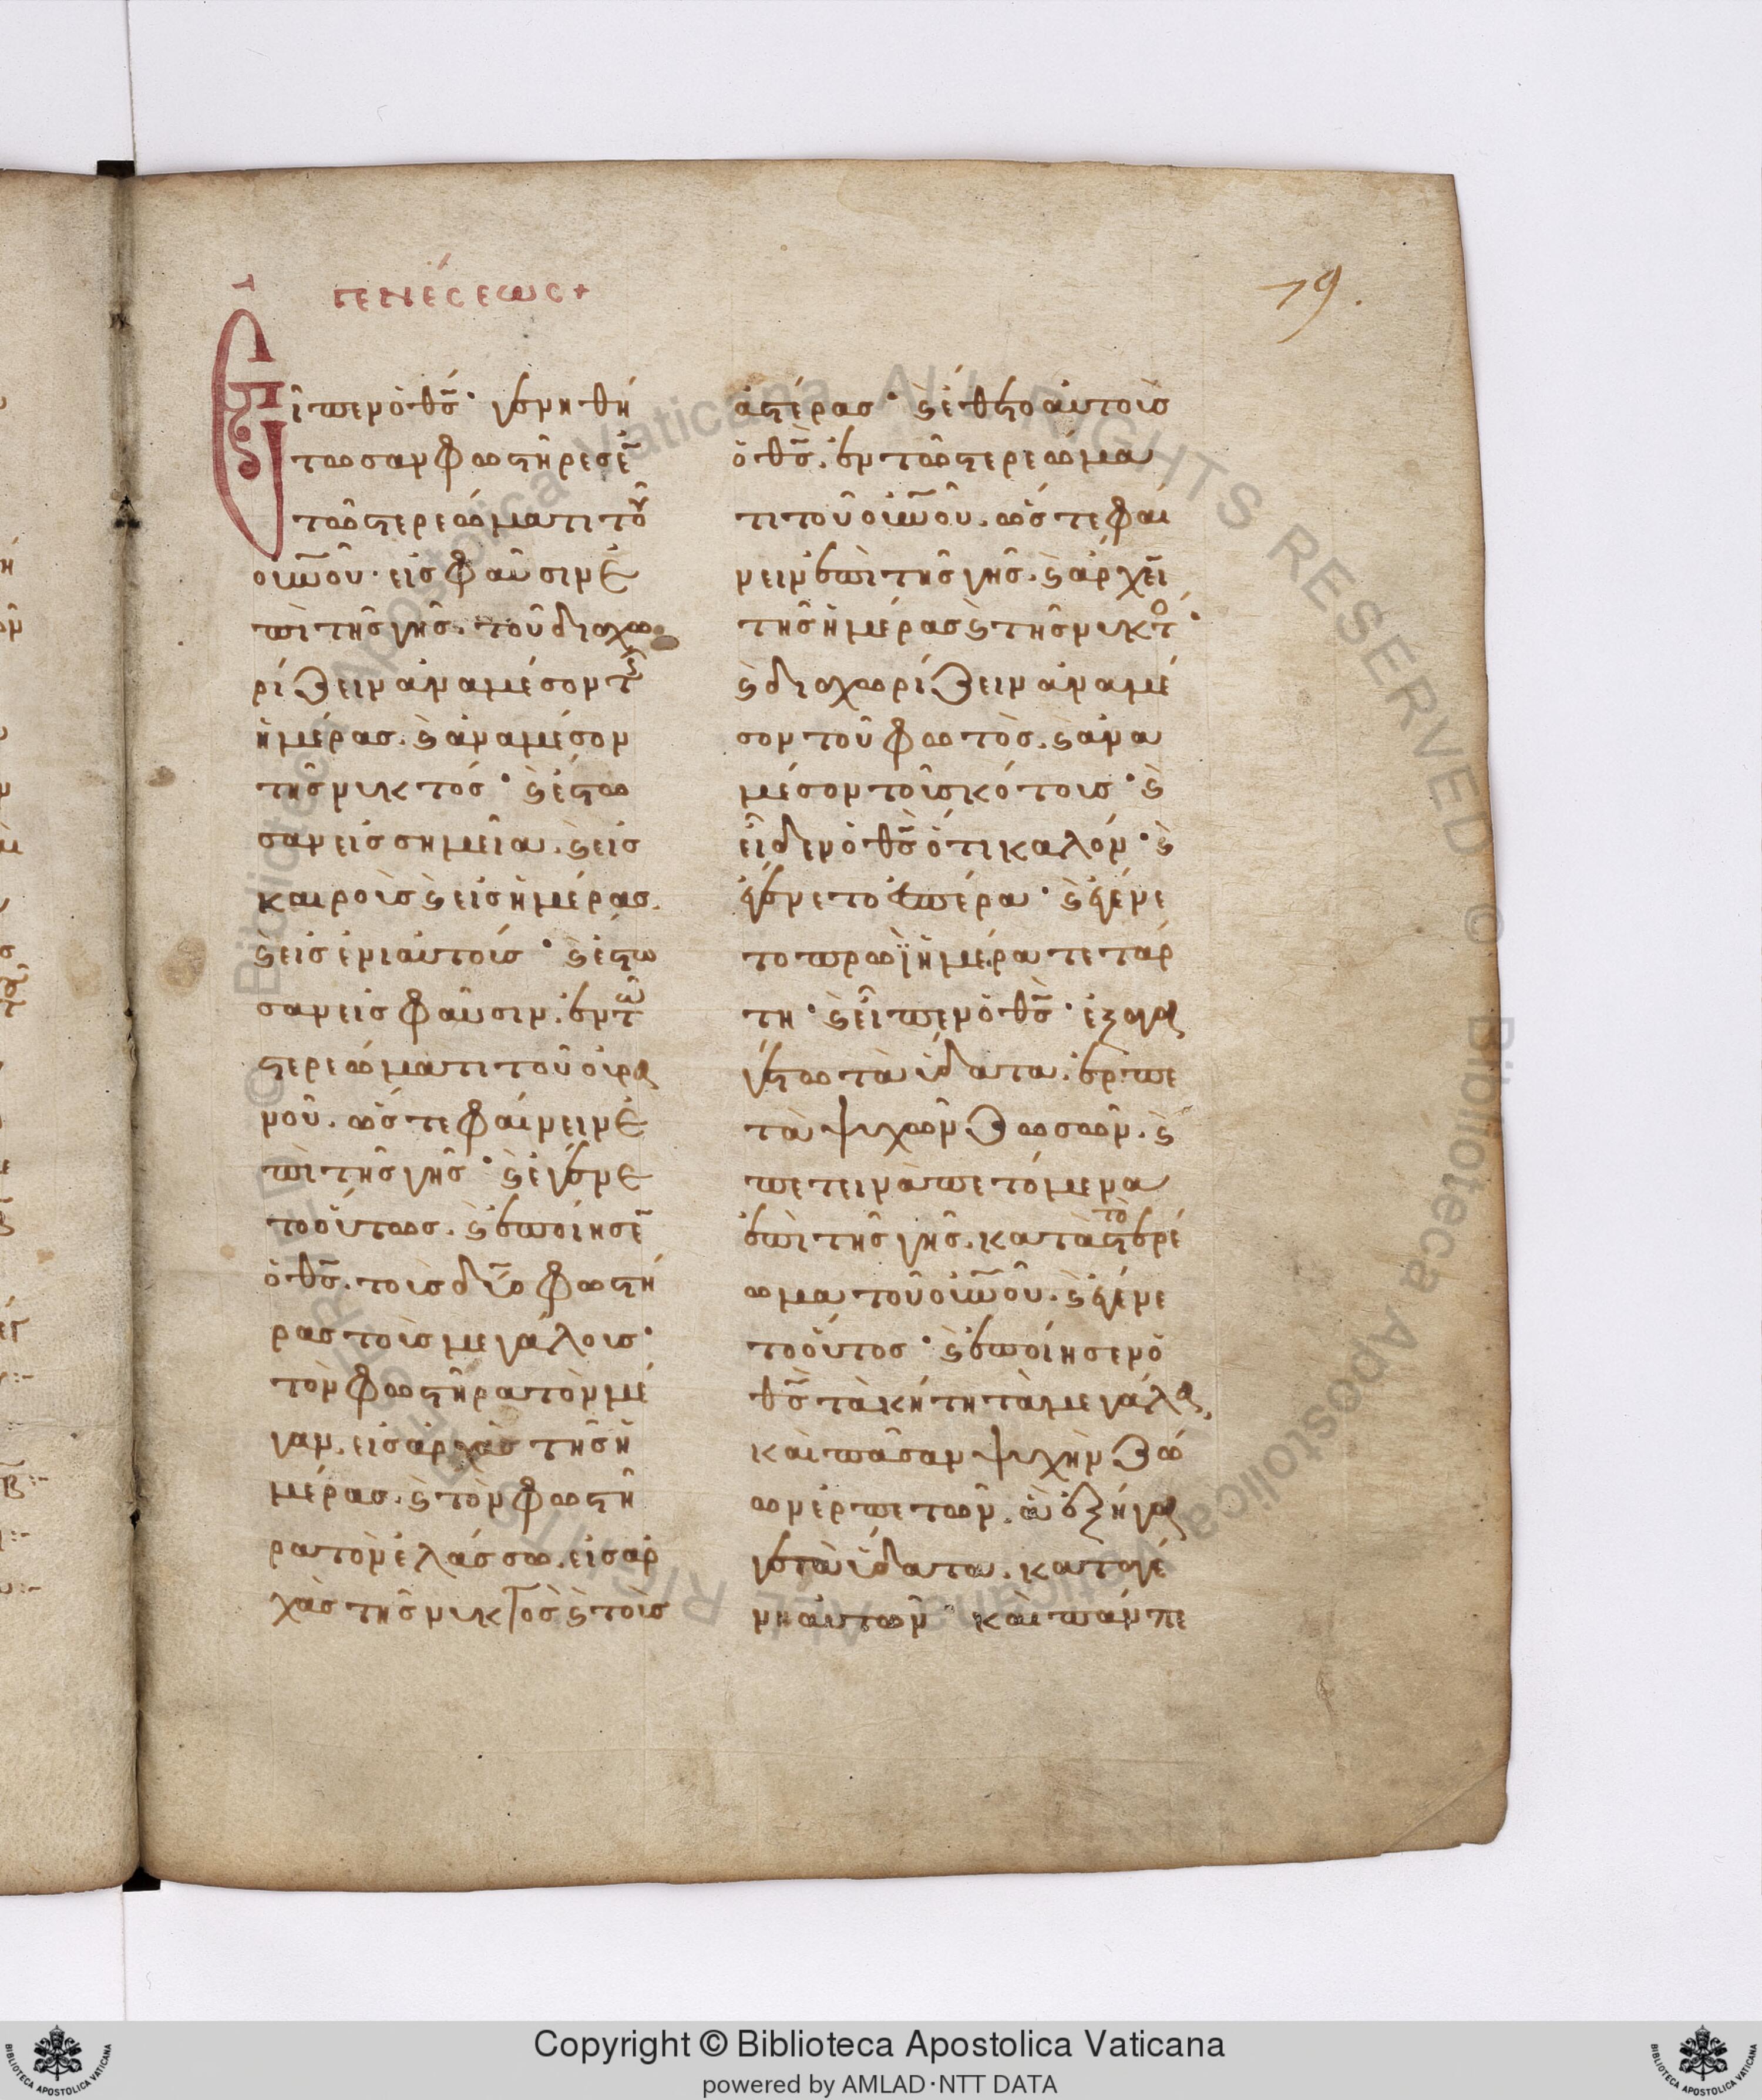 γενέσεως +
19.
Εἶπεν ὁ θς̄· γενηθή
τωσαν φωστῆρες ἐ̄
τῶ στερεώματι τοῦ
οὐν̄οῦ· εἰς φαῦσιν ἐ
πὶ τῆς γῆς. τοῦ διαχω
ρίζειν ἀναμέσον τῆς
ἡμέρας. ϗ ἀναμέσον
τῆς νυκτός· ϗ ἔστω
σαν εἰς σημεῖα. ϗ εἰς
καιροὺς ϗ εἰς ἡμέρας.
ϗ εἰς ἐνιαυτούς· ϗ ἔστω
σαν εἰς φαῦσιν. ἐν τῶ
στερεώματι τοῦ οὐρα
νοῦ. ὥστε φαίνειν ἐ
πὶ τῆς γῆς· ϗ ἐγένε
το οὕτως. ϗ ἐποίησε̄
ὁ θς̄. τοὺς δύο φωστῆ
ρας τοὺς μεγάλους·
τὸν φωστῆρα τὸν μέ
γαν. εἰς ἀρχὰς τῆς ἡ
μέρας. ϗ τὸν φωστῆ
ρα τὸν ἐλάσσω. εἰς ἀρ
χὰς τῆς νυκτὸς ϗ τοὺς
ἀστέρας· ϗ ἔθετο αὐτοὺς
ὁ θς̄. ἐν τῶ στερεώμα
τι τοῦ οὐν̄οῦ. ὥστε φαί
νειν ἐπὶ τῆς γῆς. ϗ ἄρχεῑ
τῆς ἡμέρας ϗ τῆς νυκτό·
ϗ διαχωρίζειν ἀναμέ
σον τοῦ φωτὸς. ϗ ἀνα
μέσον τοῦ σκότους· ϗ
εἶδεν ὁ θς̄ ὅτι καλόν· ϗ
ἐγένετο ἑσπέρα· ϗ ἐγένε
το πρωῒ ἡμέρα τετάρ
τη· ϗ εἶπεν ὁ θς̄· ἐξαγα
γέτω τὰ ὕδατα. ἑρπε
τὰ ψυχῶν ζωσῶν. ϗ
πετεινὰ πετόμενα
ἐπὶ τῆς γῆς. κατὰ τὸ στερέ
ωμα τοῦ οὐν̄οῦ. ϗ ἐγένε
το οὕτος· ϗ ἐποίησεν ὁ
θς̄ τὰ κήτη τὰ μεγάλα,
καὶ πᾶσαν ψυχὴν ζώ
ων ἑρπετῶν. ἃ ἐξήγα
γε τὰ ὕδατα. κατα γέ
νη αὐτῶν καὶ πάν πε
Copyright © Biblioteca Apostolica Vaticana
powered by AMLAD·NTT DATA
© Biblioteca Apostolica Vaticana ALL RIGHTS RESERVED © Biblioteca Apostolica Vaticana ALL RIGHTS RESERVED
BIBLIOTECA APOSTOLICA VATICANA
BIBLIOTECA APOSTOLICA VATICANA